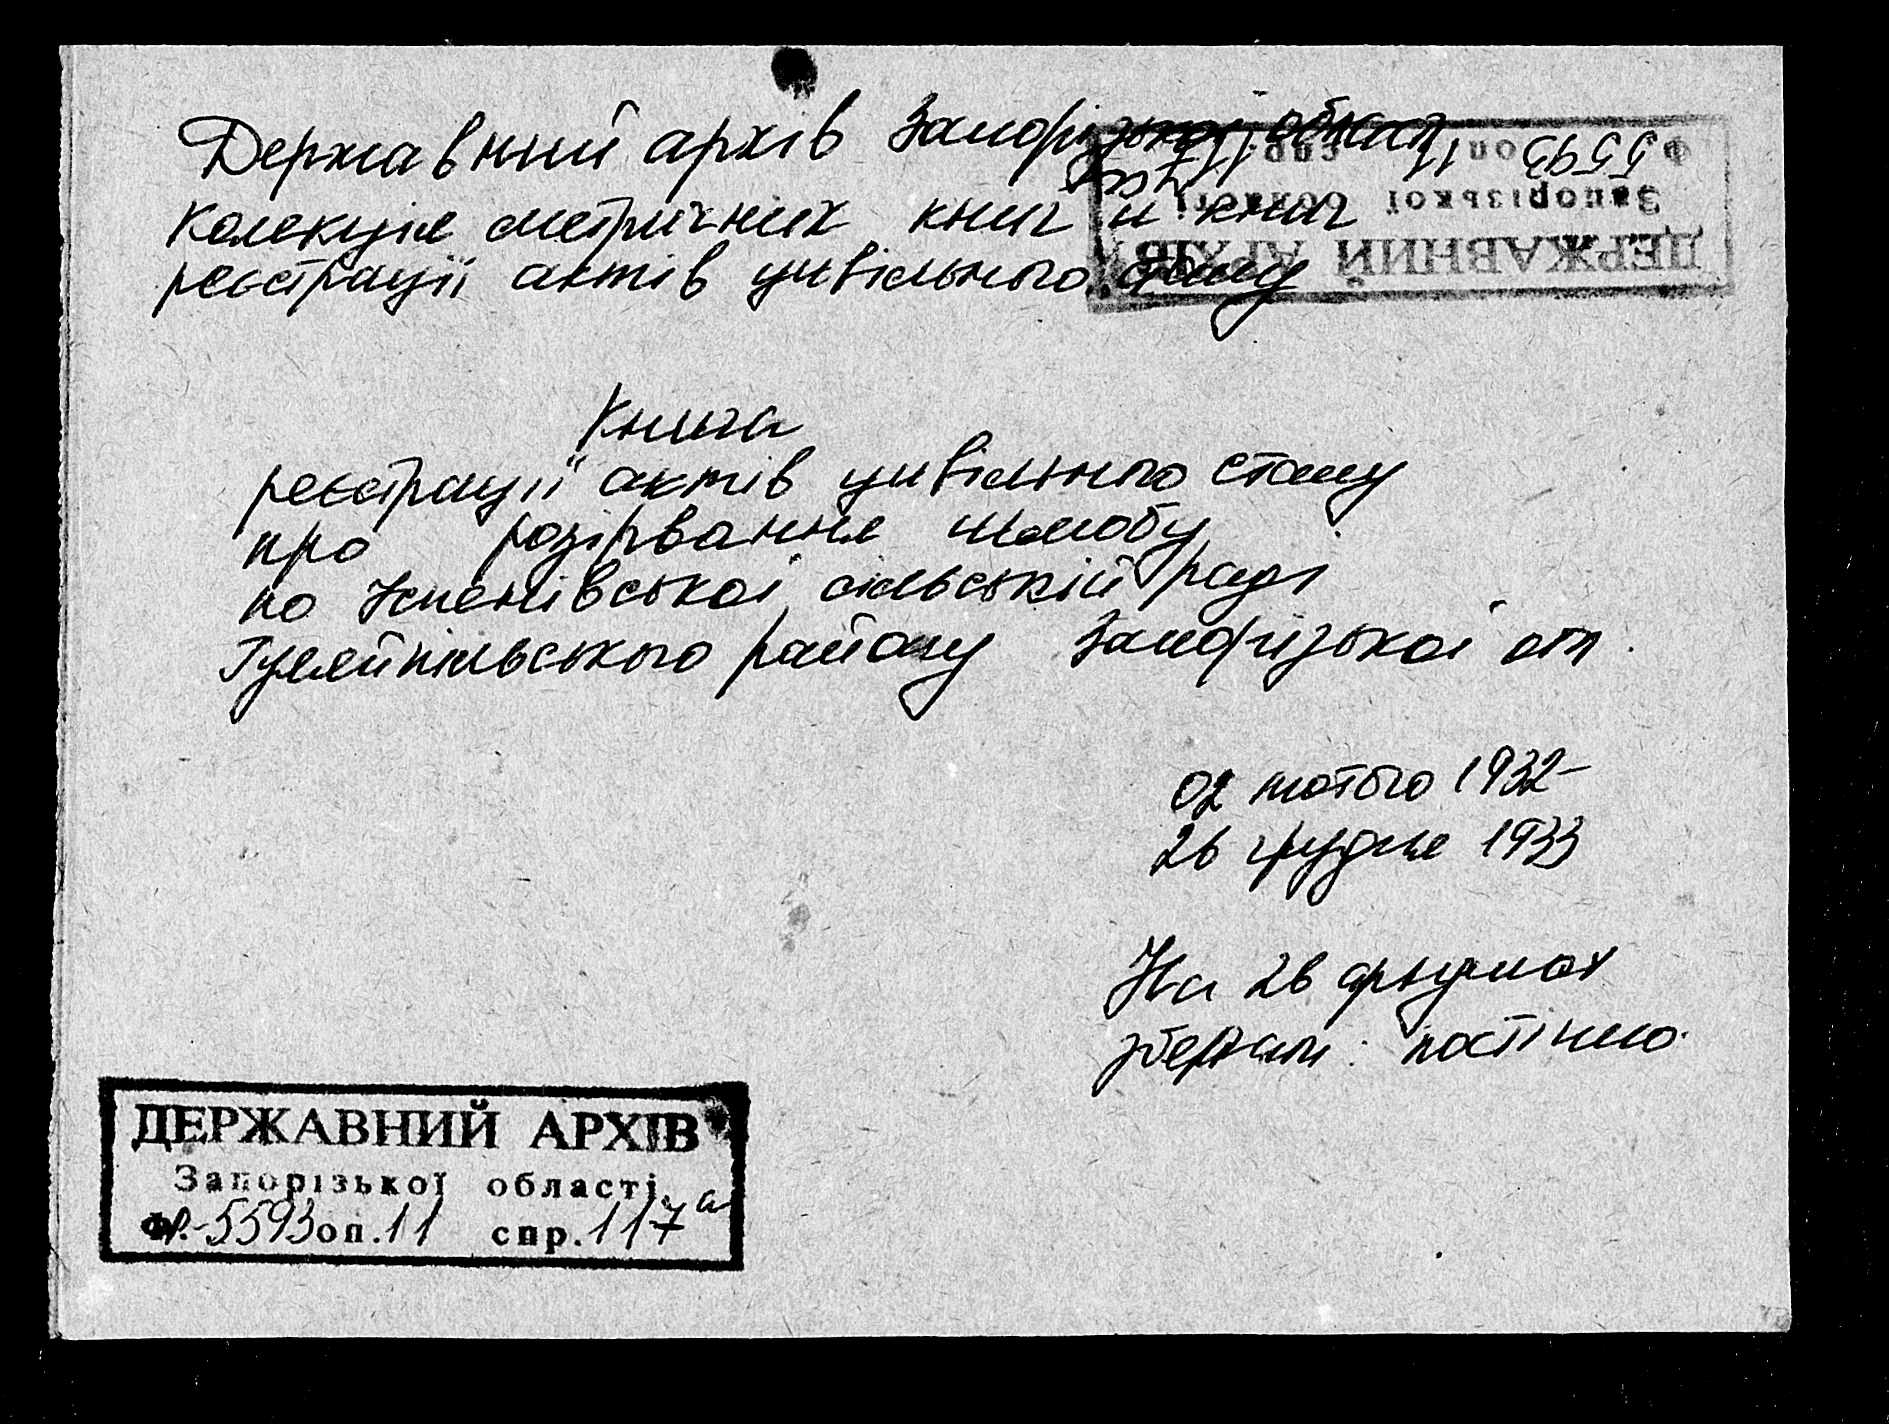 Державний архів Запорізької області
Колекція метричних книг и книг
реєстрації актів цивільного стану
Ф. 5593 оп. 11 спр. 117а
Запорізької області
ДЕРЖАВНИЙ АРХІВ
Книга
реєстрації актів цивільного стану
про розірвання шлюбу
по Успенівської сільській раді
Гуляйпільського району Запорізької обл.
02 лютого 1932-
26 грудня 1933
На 26 аркушах
зберігати: постійно.
ДЕРЖАВНИЙ АРХІВ
Запорізької області
ФР.-5593 оп. 11 спр. 117а